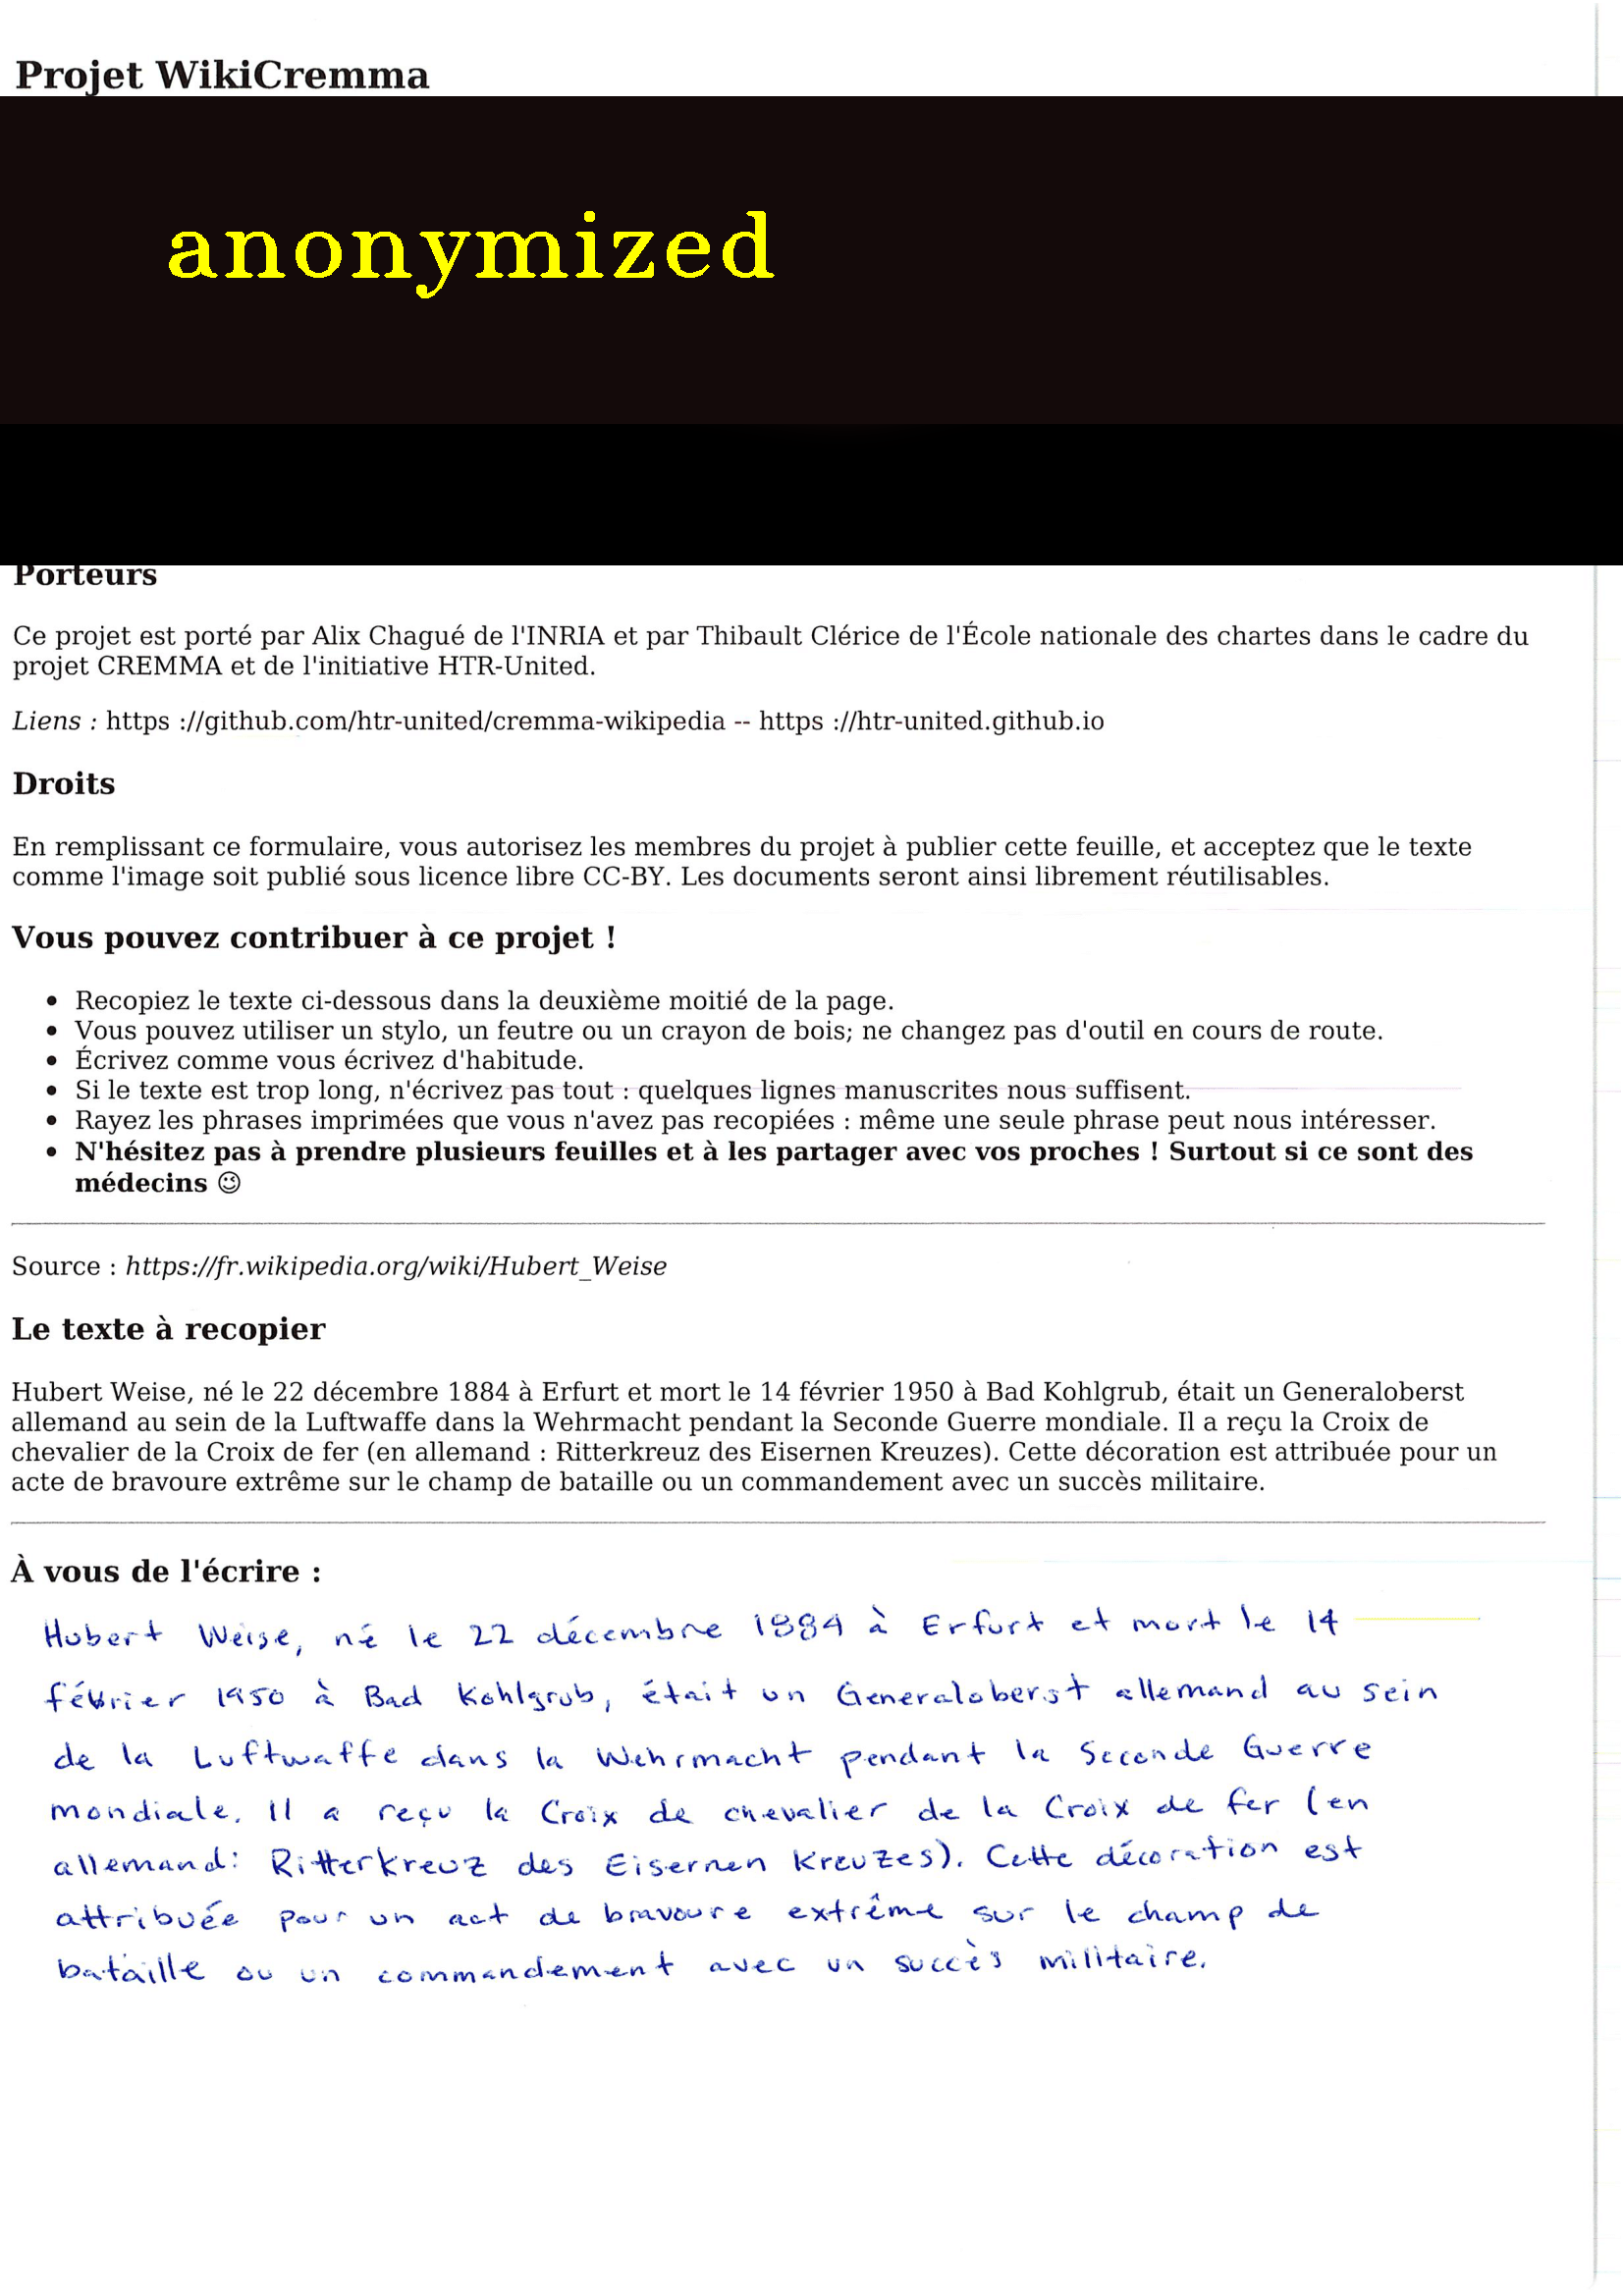 Projet WikiCremma
anonymized
Porteurs
Ce projet est porté par Alix Chagué de l'INRIA et par Thibault Clérice de l'École nationale des chartes dans le cadre du
projet CREMMA et de l'initiative HTR-United.
Liens : https ://github.com/htr-united/cremma-wikipedia -- https ://htr-united.github.io
Droits
En remplissant ce formulaire, vous autorisez les membres du projet à publier cette feuille, et acceptez que le texte
comme l'image soit publié sous licence libre CC-BY. Les documents seront ainsi librement réutilisables.
Vous pouvez contribuer à ce projet !
• Recopiez le texte ci-dessous dans la deuxième moitié de la page.
• Vous pouvez utiliser un stylo, un feutre ou un crayon de bois; ne changez pas d'outil en cours de route.
• Écrivez comme vous écrivez d'habitude.
• Si le texte est trop long, n'écrivez pas tout : quelques lignes manuscrites nous suffisent.
• Rayez les phrases imprimées que vous n'avez pas recopiées : même une seule phrase peut nous intéresser.
• N'hésitez pas à prendre plusieurs feuilles et à les partager avec vos proches ! Surtout si ce sont des
médecins 😉
Source : https://fr.wikipedia.org/wiki/Hubert_Weise
Le texte à recopier
Hubert Weise, né le 22 décembre 1884 à Erfurt et mort le 14 février 1950 à Bad Kohlgrub, était un Generaloberst
allemand au sein de la Luftwaffe dans la Wehrmacht pendant la Seconde Guerre mondiale. Il a reçu la Croix de
chevalier de la Croix de fer (en allemand : Ritterkreuz des Eisernen Kreuzes). Cette décoration est attribuée pour un
acte de bravoure extrême sur le champ de bataille ou un commandement avec un succès militaire.
À vous de l'écrire :
Hubert Weise, né le 22 décembre 1884 à Erfurt et mort le 14
février 1950 à Bad Kohlgrub, était un Generaloberst allemand au sein
de la Luftwaffe dans la Wehrmacht pendant la Seconde Guerre
mondiale. Il a reçu la Croix de chevalier de la Croix de fer (en
allemand: Ritterkreuz des Eisernen Kreuzes). Cette décoration est
attribuée pour un act de bravoure extrême sur le champ de
bataille ou un commandement avec un succès militaire.